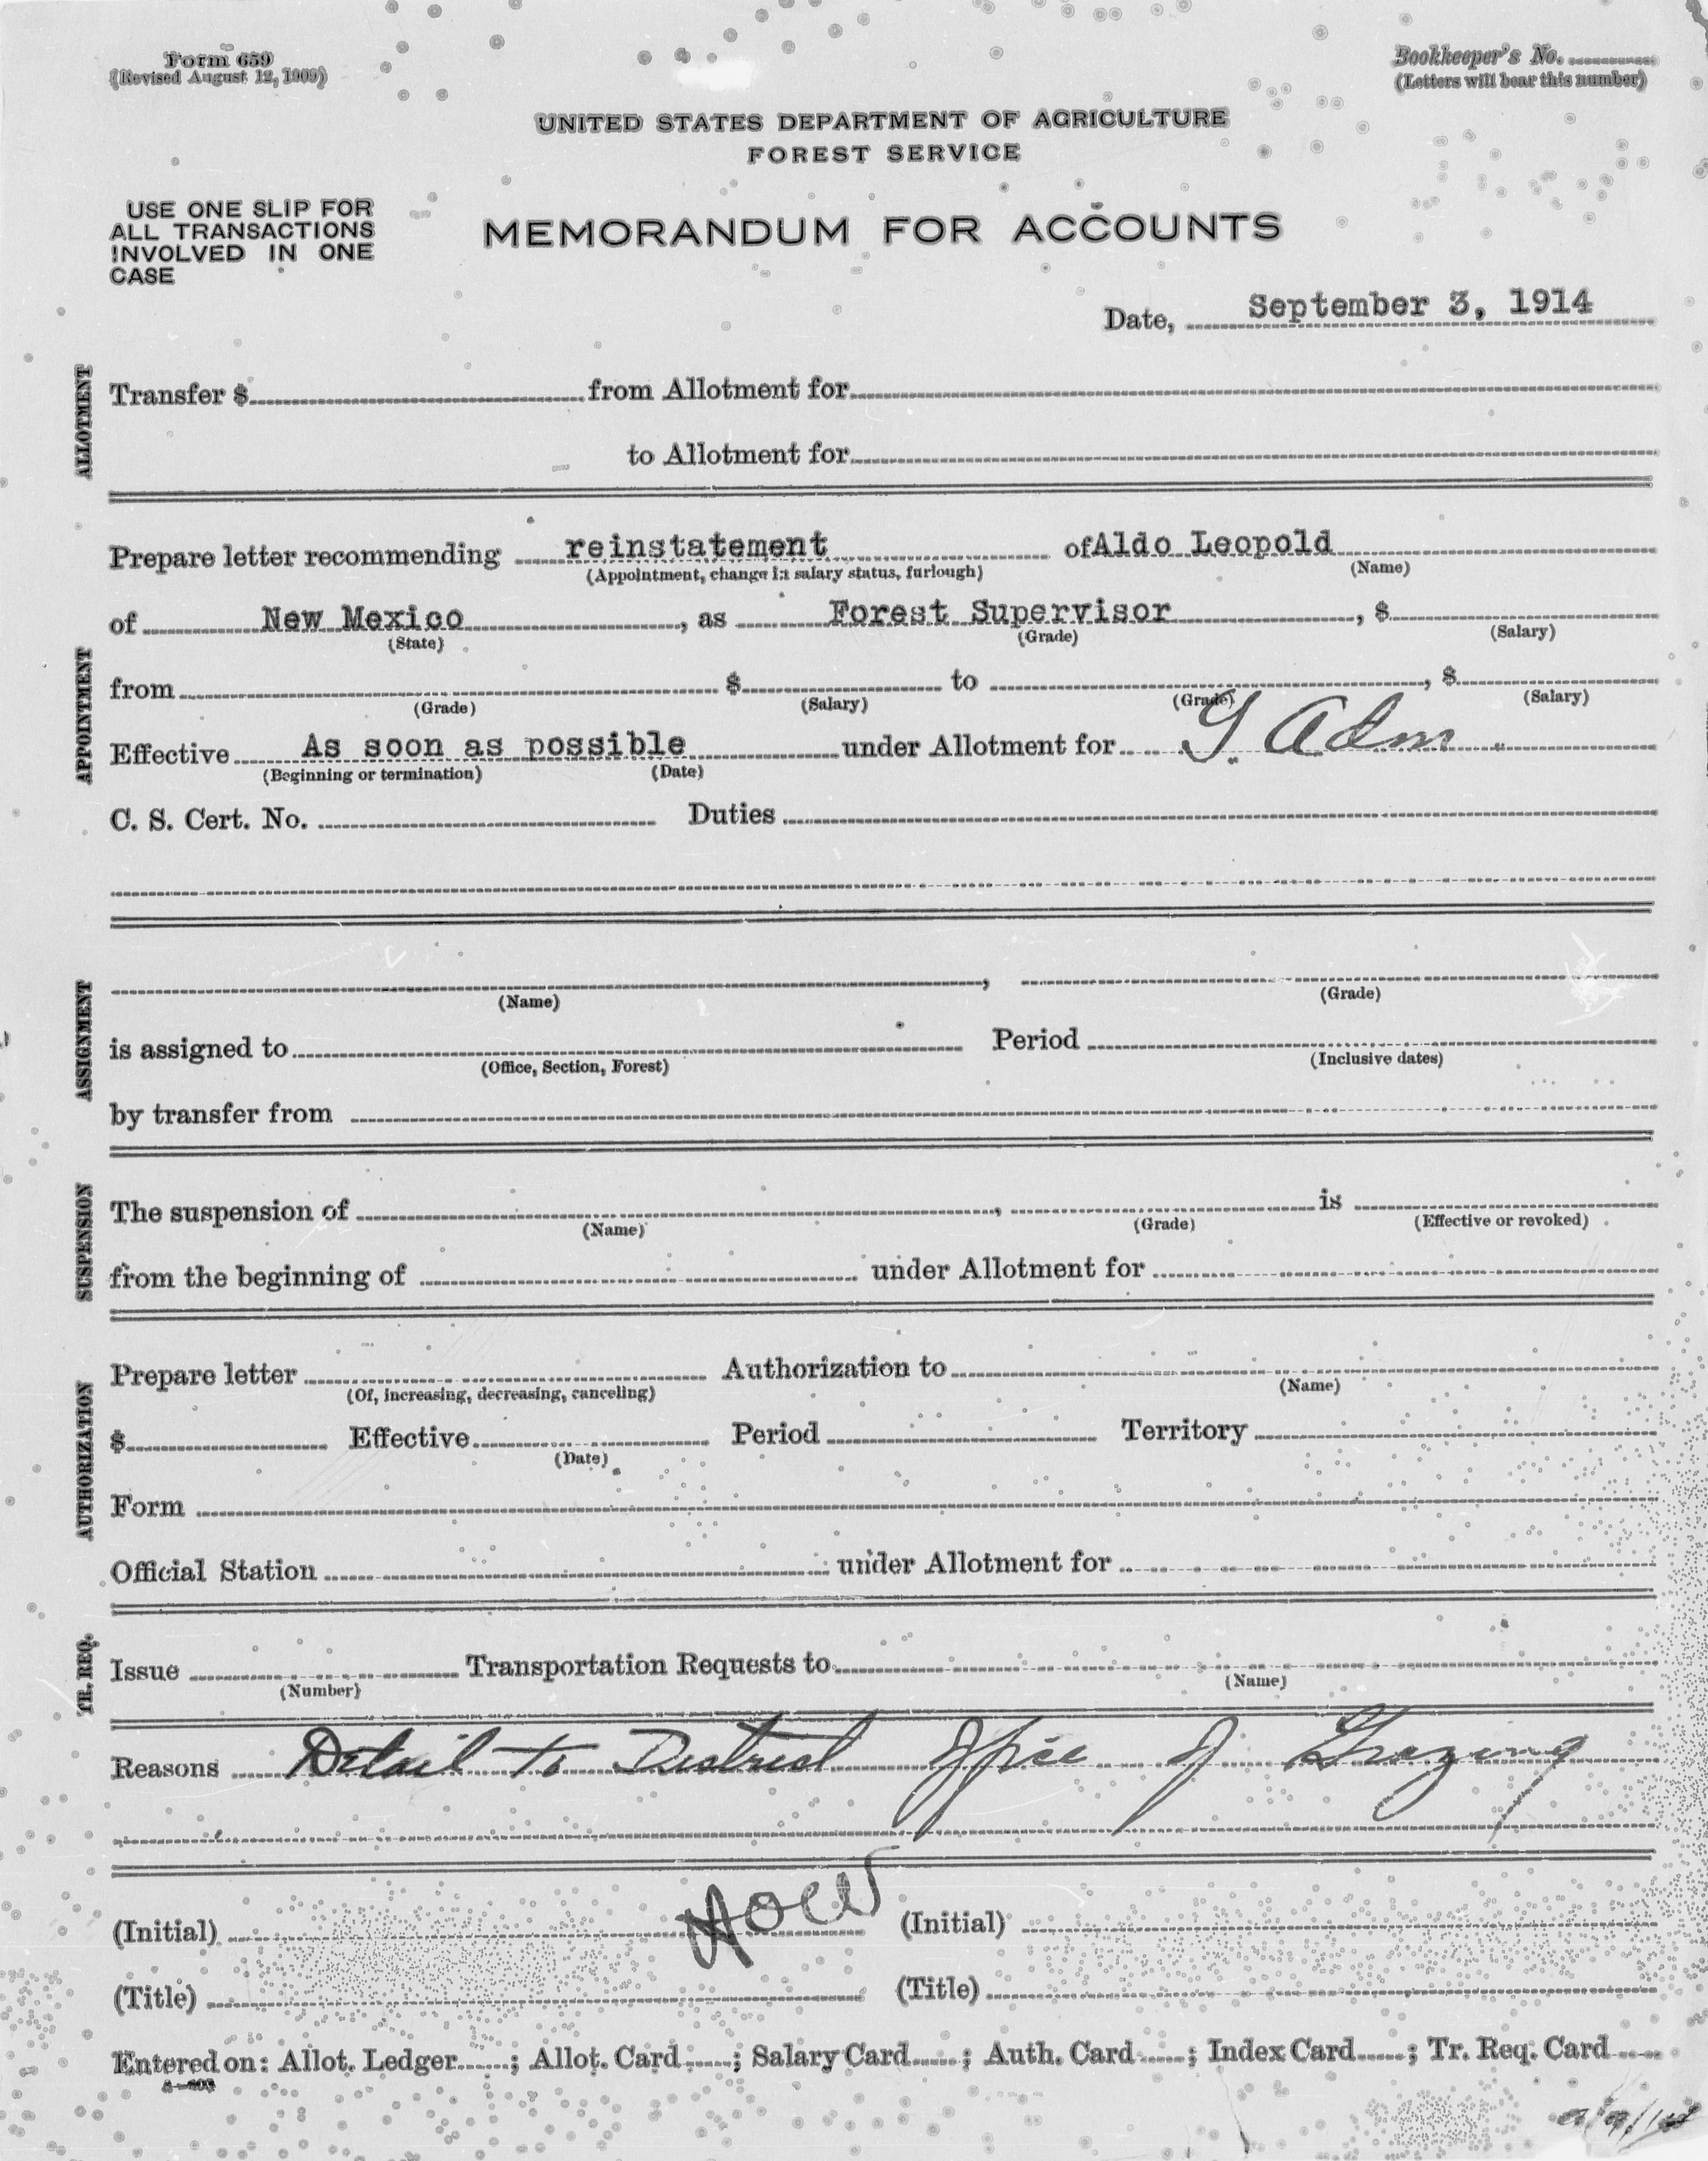 Form 659
(Revised August 12, 1909)
Bookkeeper's No.
(Letters will bear this number)
UNITED STATES DEPARTMENT OF AGRICULTURE
FOREST SERVICE
USE ONE SLIP FOR
ALL TRANSACTIONS
INVOLVED IN ONE
CASE
MEMORANDUM FOR ACCOUNTS
Date, September 3, 1914
ALLOTMENT
Transfer $ from Allotment for
to Allotment for
APPOINTMENT
Prepare letter recommending reinstatement of Aldo Leopold
(Appointment, change in salary status, furlough) (Name)
of New Mexico, as Forest Supervisor, $
(State) (Grade) (Salary)
from $ to , $
(Grade) (Salary) (Grade) (Salary)
Effective As soon as possible under Allotment for G. Adm.
(Beginning or termination) (Date)
C. S. Cert. No. Duties
ASSIGNMENT
,
(Name) (Grade)
is assigned to Period
(Office, Section, Forest) (Inclusive dates)
by transfer from
SUSPENSION
The suspension of , is
(Name) (Grade) (Effective or revoked)
from the beginning of under Allotment for
AUTHORIZATION
Prepare letter Authorization to
(Of, increasing, decreasing, canceling) (Name)
$ Effective Period Territory
(Date)
Form
Official Station under Allotment for
TR. REQ.
Issue Transportation Requests to
(Number) (Name)
Reasons Detail to District Office of Grazing
(Initial) (Initial)
(Title) (Title)
Entered on: Allot. Ledger ; Allot. Card ; Salary Card ; Auth. Card ; Index Card ; Tr. Req. Card